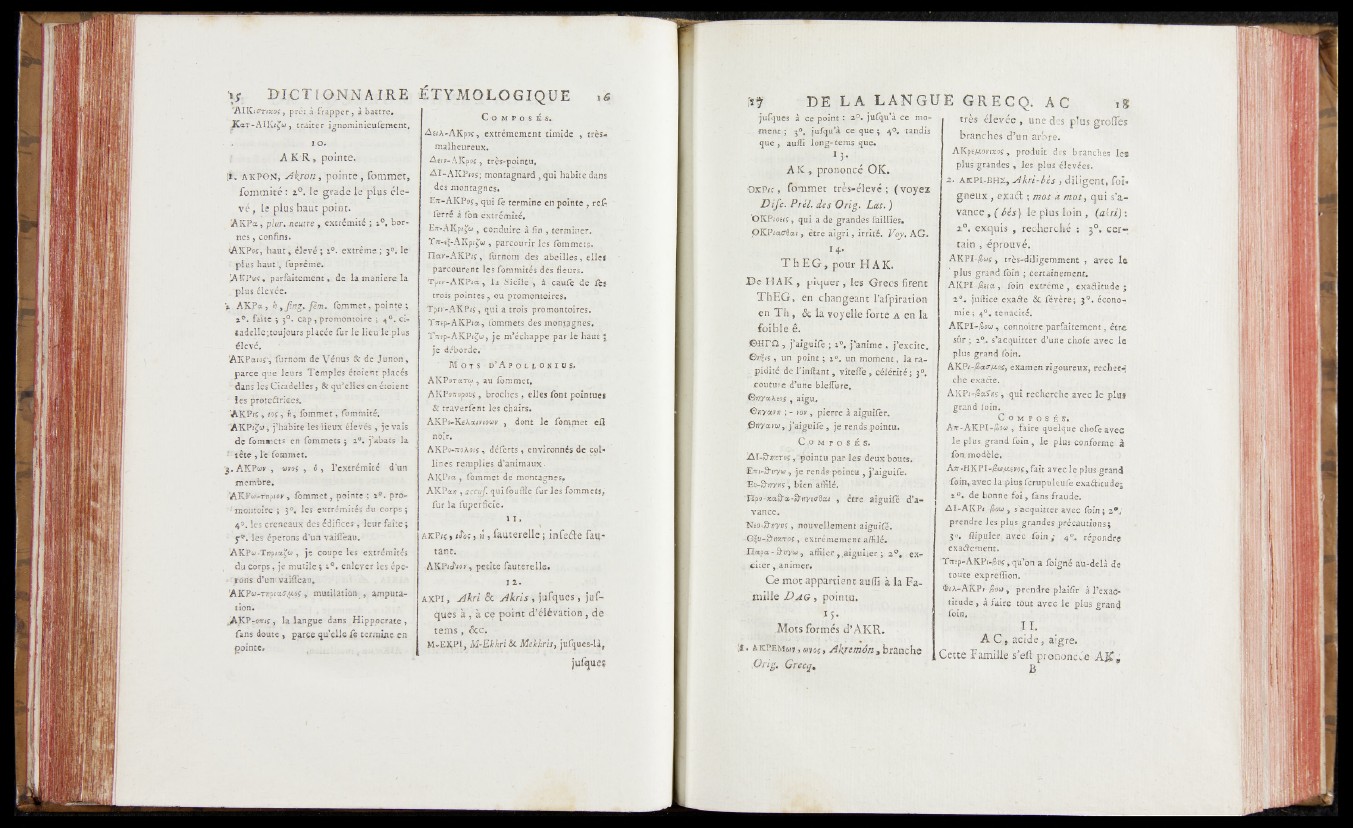 15 DICTIONNAIRE ÉTYMOLOGIQUE 16
ἈΙΚιστικος, prêt à frapper, à battre.
Κατ-ΑΙΚιζω, traiter ignominieusement.
10.
AKR, pointe.
1. ΑΚΡΟΝ, Akron, pointe, sommet,
sommité : 2°. le grade le plus éle-
vé, le plus haut point.
ἈΚΡα, plur. neutre, extrémité ; 2°, bor-
nes, confins.
ἈΚΡος, haut, élevé ; 2°. extrême ; 3°. le
plus haut, suprême.
ἈΚΡως, parfaitement, de la maniere la
plus élevée.
2. ΑΚΡα, ἡ, sing. fém. sommet, pointe ;
2°. faîte ; 3°. cap, promontoire ; 4°. ci-
tadelle; toujours placée sur le lieu le plus
élevé.
ἈΚΡαιος, surnom de Vénus & de Junon,
parce que leurs Temples étoient placés
dans les Citadelles, & qu'elles en étoient
les protectrices.
ἈΚΡις, ιος, ἡ, sommet, sommité.
ἈΚΡιζω, j'habite les lieux élevés, je vais
de sommets en sommets ; 2°. j'abats la
tête, le sommet.
3. ΑΚΡων, ωνος, ὁ, l'extrémité d'un
membre.
ἈΚΡω-τηριον, sommet, pointe : 2°. pro-
montoire ; 3°. les extrémités du corps ;
4°. les creneaux des édifices, leur faîte ;
5°. les éperons d'un vaisseau.
ΑΚΡω-Τηριαζω, je coupe les extrémités
du corps, je mutile ; 2°. enlever les épe-
rons d'un vaisseau.
ἈΚΡω-τηριασμος, mutilation, amputa-
tion.
ΑΚΡ-, la langue dans Hippocrate,
sans doute, parce qu'elle se termine en
pointe.
COMPOSÉS.
Δειλ-ΑΚρος, extrêmement timide, très-
malheureux.
-ΑΚρος, très-pointu,
ΔΙ-ΑΚΡιος; montagnard, qui habite dans
des montagnes.
Επ-ΑΚΡος, qui se termine en pointe, res-
serré à son extrémité.
Επ-ΑΚριζω, conduire à fin, terminer.
Υπ-εξ-ΑΚριζω, parcourir les sommets.
Παν-ΑΚΡις, surnom des abeilles, elles
parcourent les sommités des fleurs.
Τριν-ΑΚΡια, la Sicile, à cause de ses
trois pointes, ou promontoires.
Τριν-ΑΚΡις, qui a trois promontoires.
Υπερ-ΑΚΡια, sommets des montagnes.
Υπερ-ΑΚΡιζω, je m'échappe par le haut ;
je déborde.
MOTS D'APOLLONIUS.
ΑΚΡοτατω, au sommet.
ΑΚΡοπορους, broches, elles sont pointues
& traversent les chairs.
ΑΚΡο-Κελαινιοων, dont le sommet est
noir.
ΑΚΡο-πολος, déserts, environnés de col-
lines remplies d'animaux.
ΑΚΡια, sommet de montagnes.
ΑΚΡαη, accus. qui souffle sur les sommets,
sur la superficie.
11.
ΑΚΡις, ιδος, ἡ, sauterelle ; insecte sau-
tant.
ΑΚΡιδιον, petite sauterelle.
12.
ΑΧΡΙ, Akri & Akris, jusques, jus-
ques à, à ce point d'élévation, de
tems, &c.
Μ-ΕΧΡΙ, M-Ekhri & Mekhris, jusques-là,
jusques
17 DE LA LANGUE GRECQ. AC 18
jusques à ce point : 2°. jusqu'à ce mo-
ment ; 3°. jusqu'à ce que ; 4°. tandis
que, aussi long-tems que.
13.
AK, prononcé OK.
ΟΚΡις, sommet très-élevé ; (voyez
Disc. Prél. des Orig. Lat.)
ὈΚΡιοεις, qui a de grandes saillies.
ΟΚΡιασθαι, être aigri, irrité. Voy. AG.
14.
ThEG, pour HAK.
De HAK, piquer, les Grecs firent
ThEG, en changeant l'aspiration
en Th, & la voyelle forte A en la
foible ê.
ΘΗΓΩ, j'aiguise ; 2°. j'anime, j'excite.
Θηξις, un point ; 2°. un moment, la ra-
pidité de l'instant, vitesse, célérité ; 3°.
couture d'une blessure.
Θηγαλεος, aigu.
Θηγανη ; - ιον, pierre à aiguiser.
Θηγανω, j'aiguise, je rends pointu.
COMPOSÉS.
ΔΙ-Θηκτος, pointu par les deux bouts.
Επι-Θηγω, je rends pointu, j'aiguise.
Ευ-Θηγης, bien affilé.
Προ-καθα-Θηγεσθαι, être aiguisé d'a-
vance.
Νεο-Θηγης, nouvellement aiguisé.
Οξυ-Θηκτος, extrêmement affilé.
Παρα-Θηγω, affiler, aiguiser ; 2°. ex-
citer, animer.
Ce mot appartient aussi à la Fa-
mille DAG, pointu.
15.
Mots formés d'AKR.
1. ΑΚΡΕΜων, ωνος, Akremón, branche
Orig. Grecq.
très élevée, une des plus grosses
branches d'un arbre.
ΑΚΡεμονικος, produit des branches les
plus grandes, les plus élevées.
2. ΑΚΡΙ-ΒΗΣ, Akri-bès, diligent, soi-
gneux, exact ; mot à mot, qui s'a-
vance, (bès) le plus loin, (akri) :
2°. exquis, recherché ; 3°. cer-
tain, éprouvé.
ΑΚΡΙ-βως, très-diligemment, avec le
plus grand soin ; certainement.
ΑΚΡΙ-βεια, soin extrême, exactitude ;
2°. justice exacte & sévère ; 3°. écono-
mie ; 4°. tenacité.
ΑΚΡΙ-βοω, connoître parfaitement, être
sûr ; 2°. s'acquitter d'une chose avec le
plus grand soin.
ΑΚΡι-βασμος, examen rigoureux, recher-
che exacte.
ΑΚΡι-βαστης, qui recherche avec le plus
grand soin.
COMPOSÉS.
Απ-ΑΚΡΙ-βοω, faire quelque chose avec
le plus grand soin, le plus conforme à
son modèle.
Απ-ΗΚΡΙ-βωμενος, fait avec le plus grand
soin, avec la plus scrupuleuse exactitude ;
2°. de bonne foi, sans fraude.
ΔΙ-ΑΚΡι-βοω, s'acquitter avec soin ; 2°.
prendre les plus grandes précautions ;
3°. stipuler avec soin ; 4°. répondre
exactement.
Υπερ-ΑΚΡι-βης, qu'on a soigné au-delà de
toute expression.
Φιλ-ΑΚΡι-βοω, prendre plaisir à l'exac-
titude, à faire tout avec le plus grand
soin.
II.
AC, acide, aigre.
Cette Famille s'est prononcée AK,
B